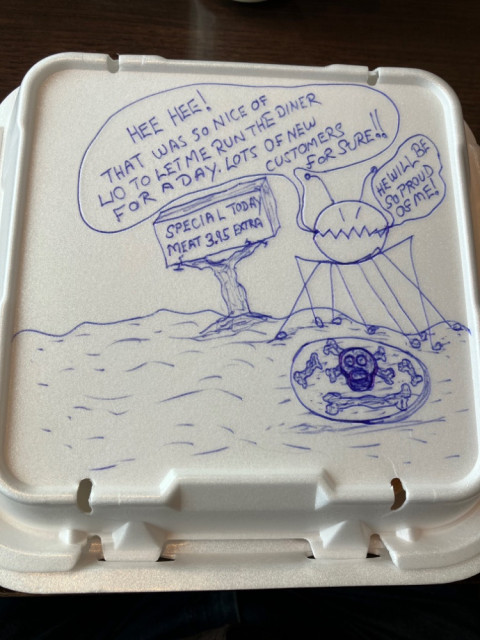 HEE HEE!
THAT WAS SO NICE OF
LIO TO LET ME RUN THE DINER
FOR A DAY, LOTS OF NEW
CUSTOMERS
FOR SURE!!
HE WILL BE
SO PROUD
OF ME!
SPECIAL TODAY
MEAT 3.95 EXTRA